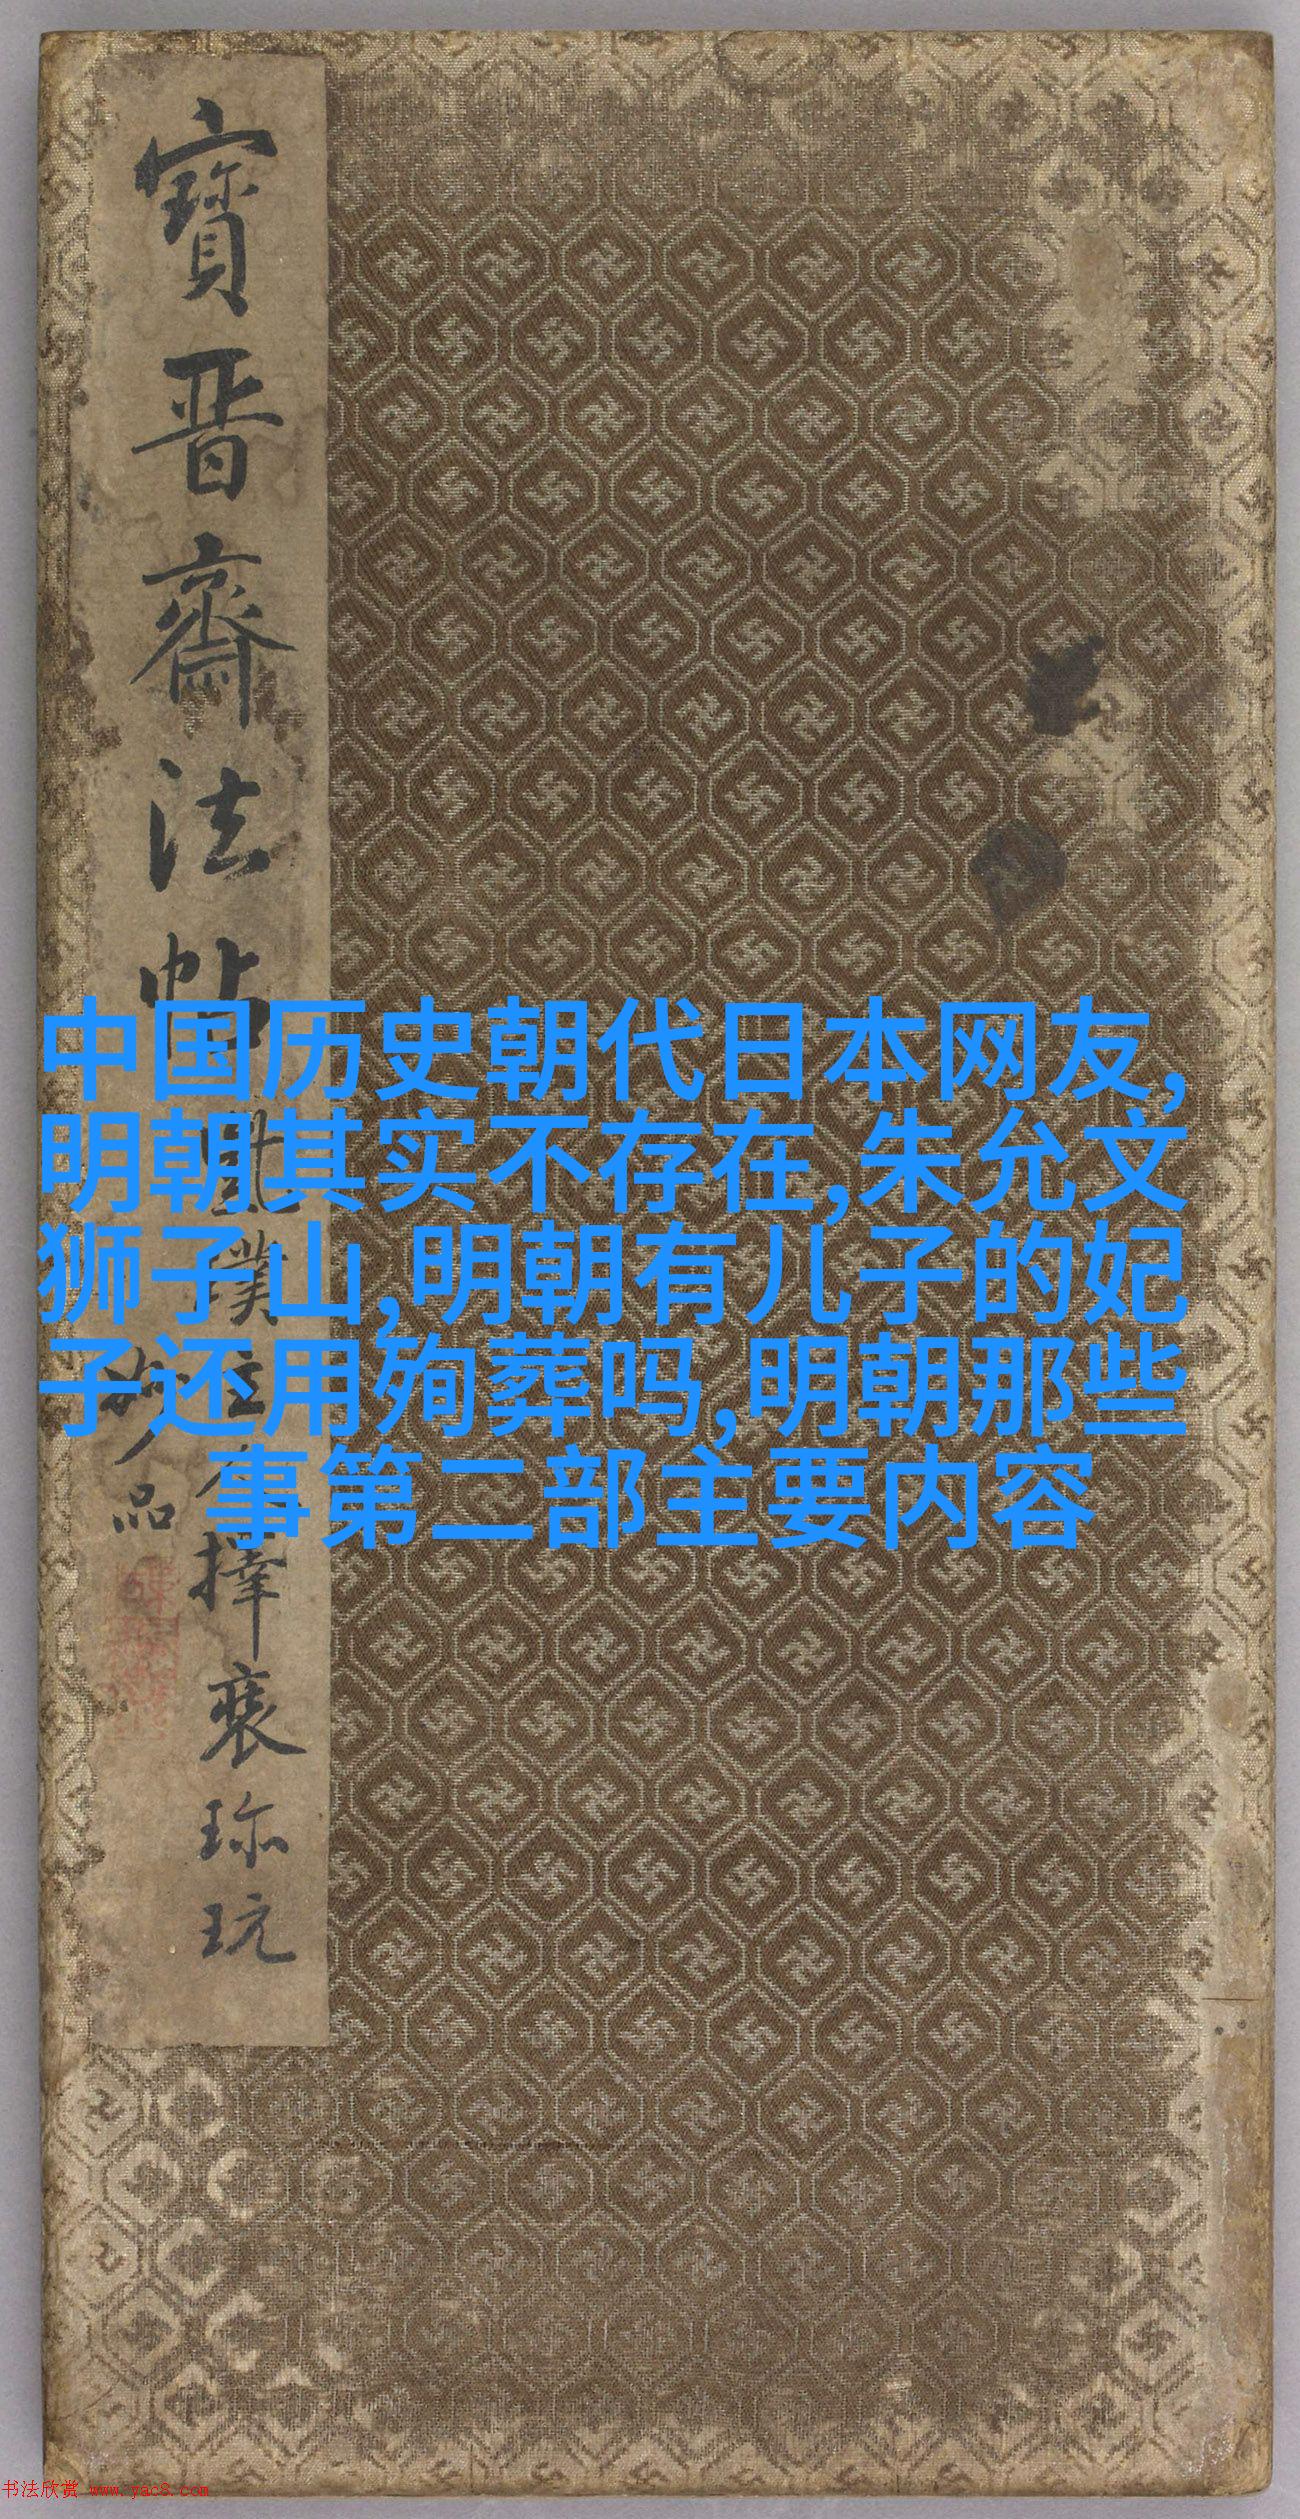 寶晋齋法帖
撲
主人擇裘珎玩
品
中国历史朝代日本网友,
明朝其实不存在,朱允文
狮子山,明朝有儿子的妃
子还用殉葬吗,明朝那些
事第二部主要内容
书法欣赏 www.yac8.com